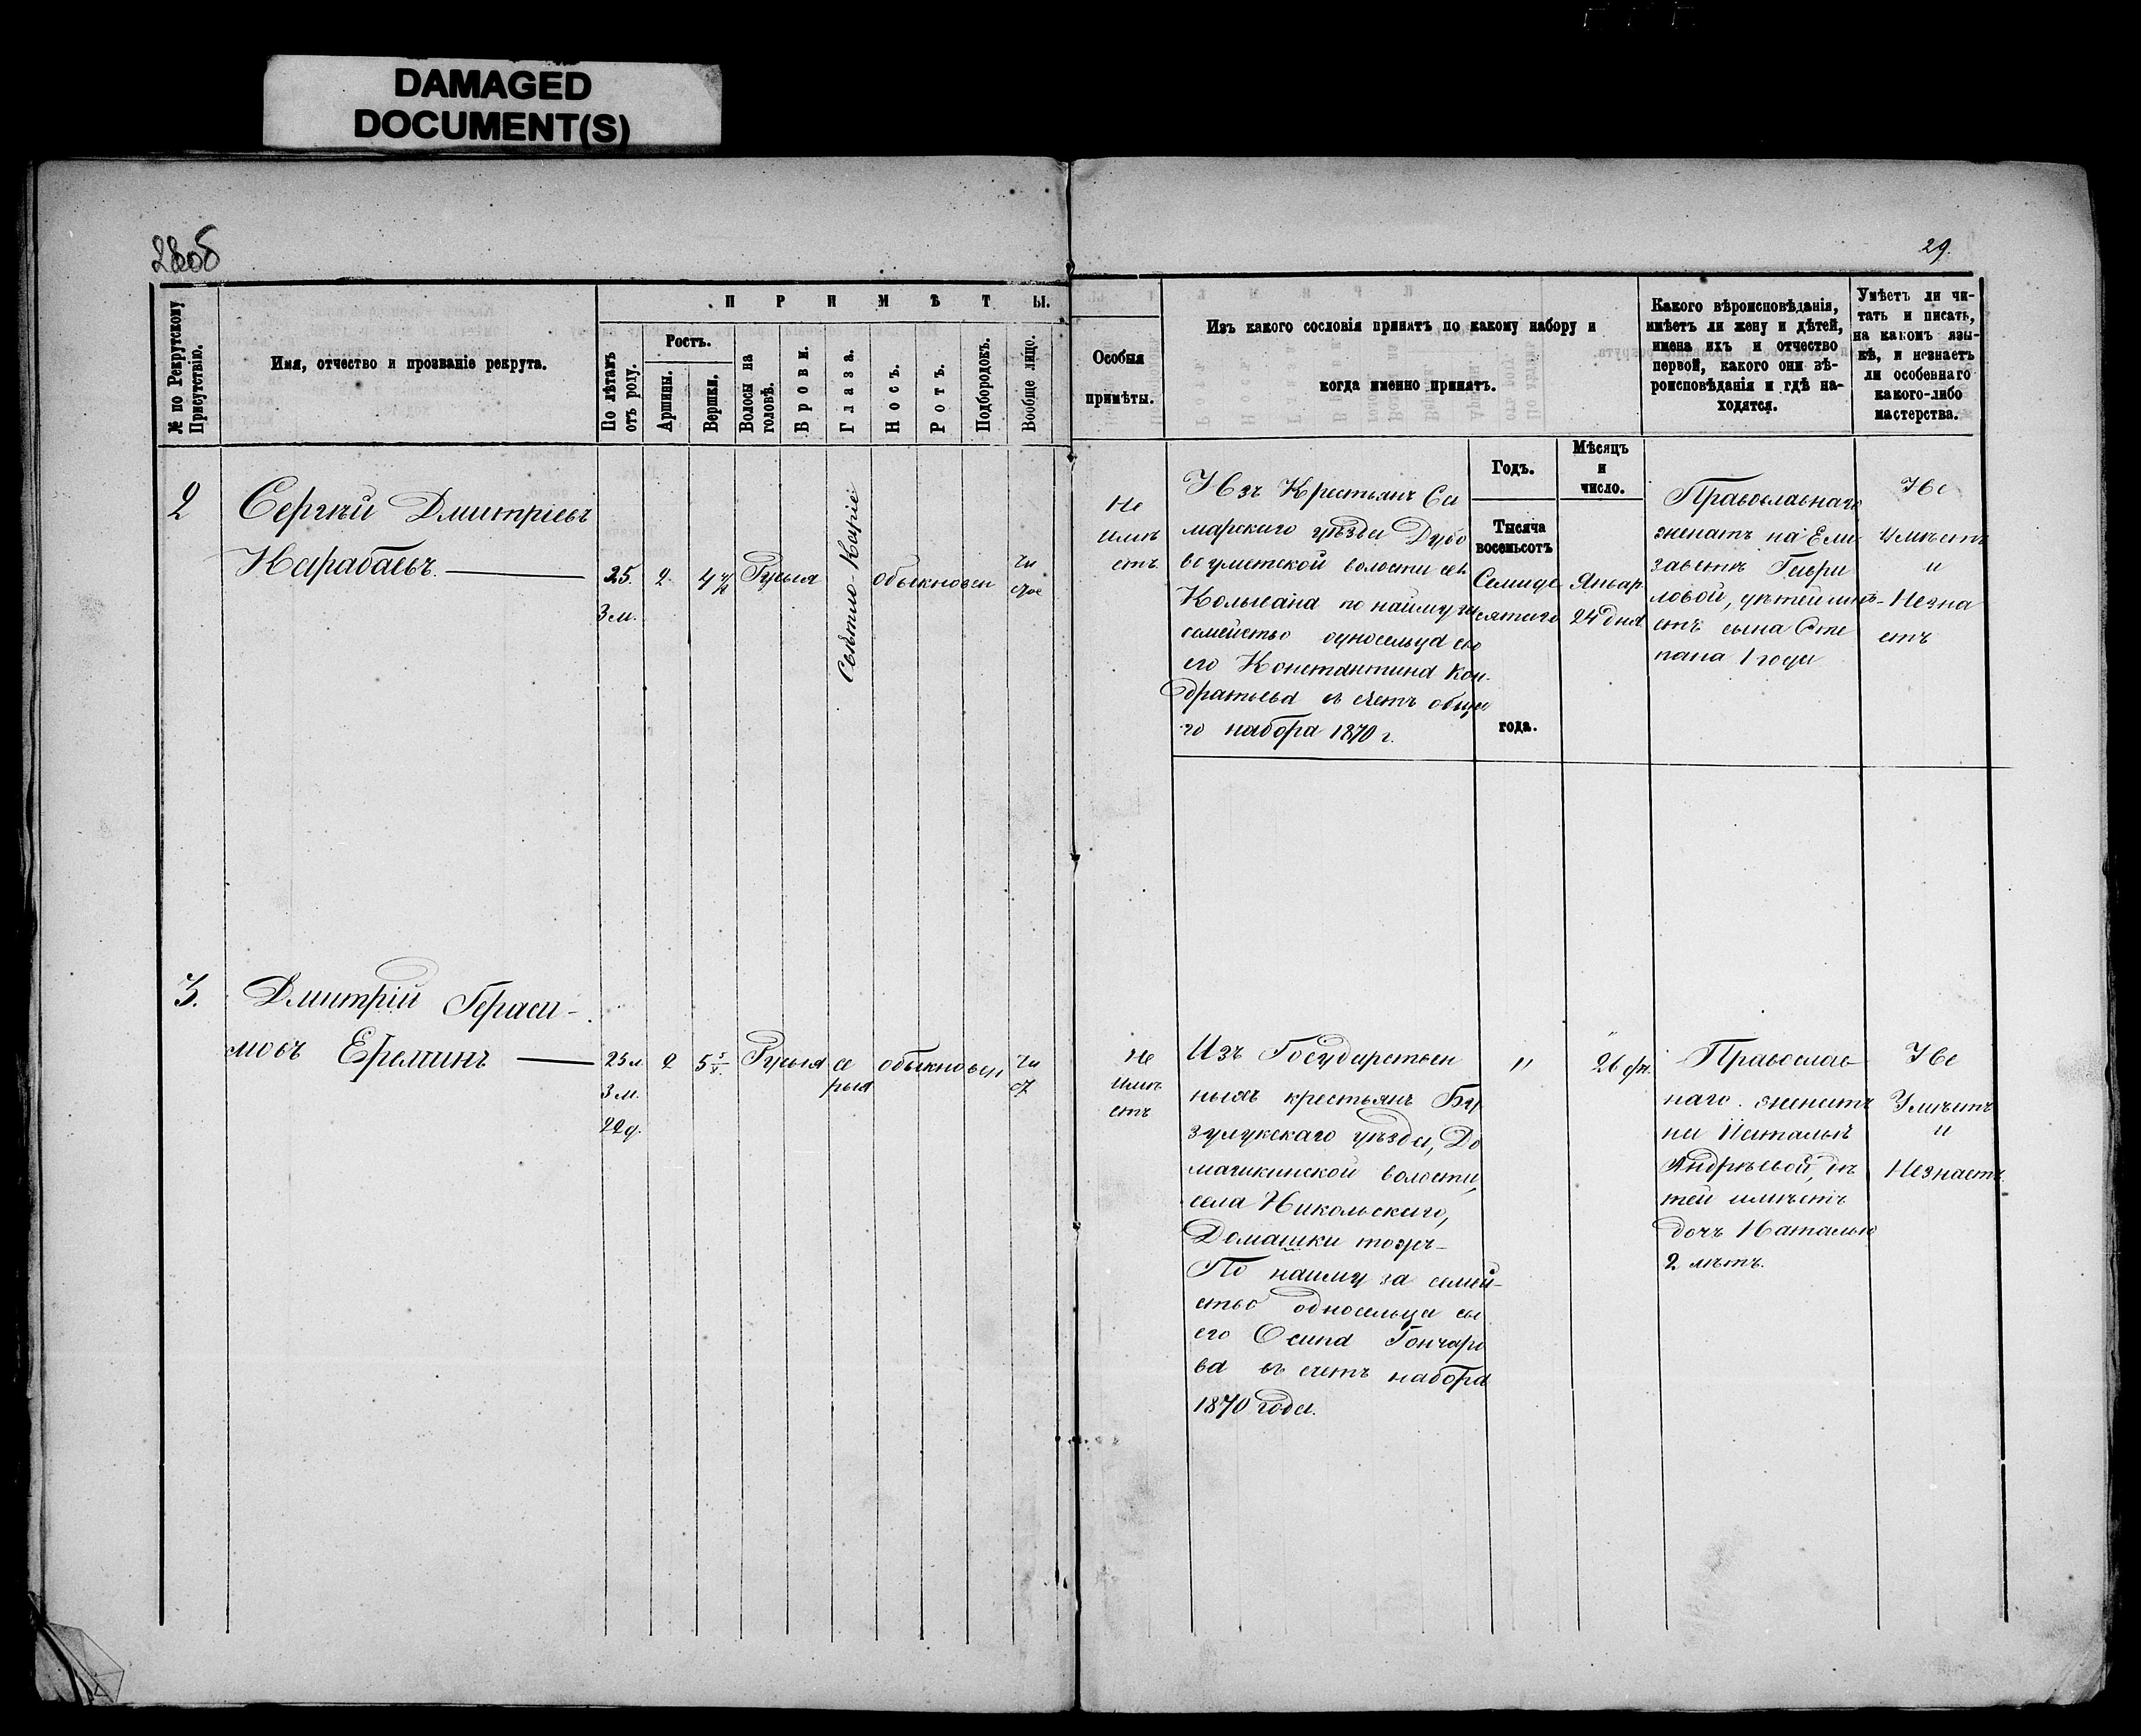 DAMAGED
DOCUMENT(S)
28об
29.
№ по Рекрутскому
Присутствію.
Имя, отчество и прозваніе рекрута.
ПРИМѢТЫ.
По лѣтамъ
отъ роду.
Ростъ.
Аршины.
Вершки.
Волосы на
головѣ.
Брови.
Глаза.
Носъ.
Ротъ.
Подбородокъ.
Вообще лицо.
Особыя
примѣты.
Изъ какого сословія принятъ по какому набору и
когда именно принятъ.
Какого вѣроисповѣданія,
имѣетъ ли жену и дѣтей,
имена ихъ и отчество
первой, какого они вѣ-
роисповѣданія и гдѣ на-
ходятся.
Умѣетъ ли чи-
тать и писать,
на какомъ язы-
кѣ, и незнаетъ
ли особеннаго
какого-либо
мастерства.
Годъ.
Мѣсяцъ
и
число.
2
Сергѣй Дмитріевъ
Карабаевъ.
25.
3 м.
2
4
Русыя
Свѣтло Каріе
обыкновен
чи
стое
Не
имѣ
етъ
Изъ Крестьянъ Са
марскаго уѣзда Дубо
воуметской волости
Колывана по найму за
семейство односельца сво
его Константина Кон-
дратьева въ счетъ обща
го набора 1870 г.
Тысяча
восемьсотъ
Семиде
сятаго
года.
Январ.
24 дня.
Православнаго
женатъ на Ели
заветѣ Гаври
ловой, дѣтей имѣ-
етъ сына Сте
пана 1 года
Не
Умѣетъ
и
Незна
етъ
3.
Дмитрій Гераси-
мовъ Ереминъ
25 л
3 м.
22 д.
2
5
Русыя
се
рыя
обыкновен
чи
ст
Не
имѣ
етъ
Изъ Государствен
ныхъ крестьянъ Бу
зулукскаго уѣзда, До
машкинской волости,
села Никольскаго,
Домашки тожъ-
По найму за семей-
ство односельца сво
его Осипа Гончаро
ва въ счетъ набора
1870 года.
"
26
Православ
наго. женатъ
на Натальѣ
Андрѣевой, дѣ
тей имѣетъ
дочь Наталью
2 лѣтъ.
Не
Умѣетъ
и
Незнаетъ